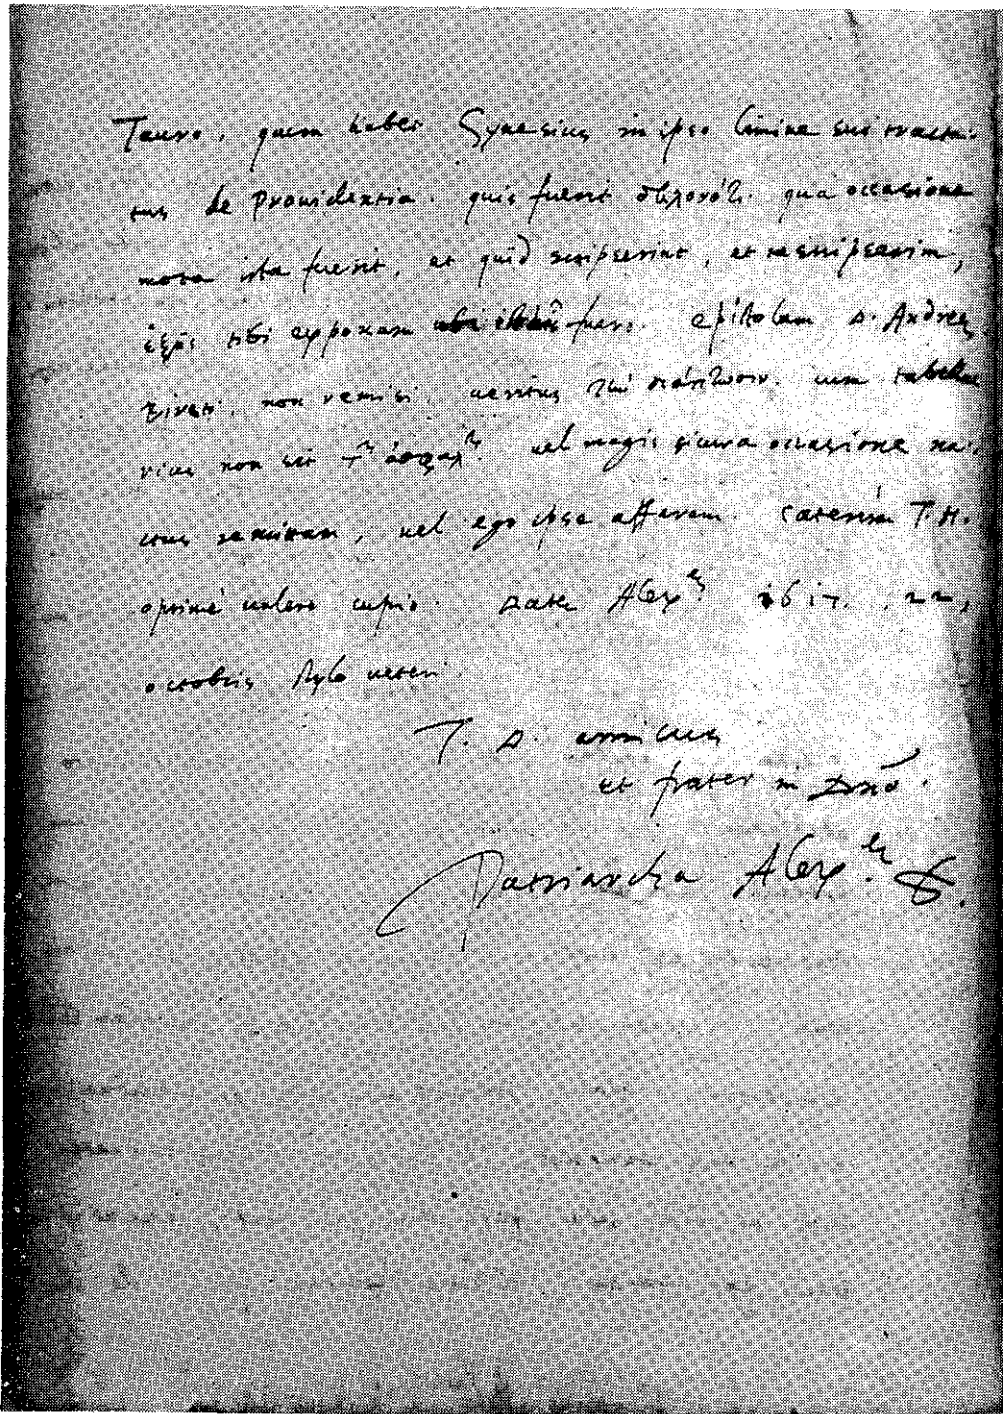 Tauro. quem habet Synesius in ipso limine sui tracta-
tus de Prouidentia. quis fuerit qua occasione
mota ista fuerit, et quid scripserint, et rescripserim,
ἑξῆς tibi exponam fuero. epistolam D. Andreę
non remisi. ueritus τὴν cum tabella
rius non sit vel magis occasione na-
ctus remittam, uel ego ipse afferam. caeterum T. H.
optimè ualere cupio. Datę Alex.ę 1617. 22,
octobris stylo ueteri.
T. D. amicus
et frater in Dnō.
Patriarcha Alex.ę